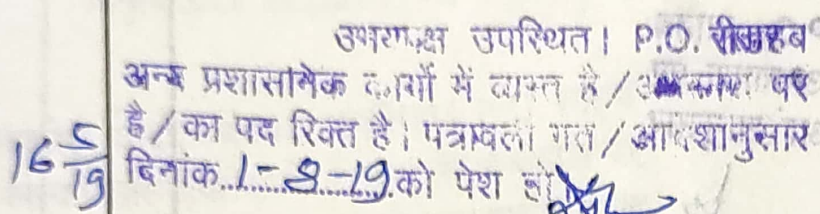 उभयपक्ष उपस्थित। P.O. साहब
अन्य प्रशासनिक कार्यों में व्यस्त है / अवकाश पर
है / का पद रिक्त है। पत्रावली गत / आदेशानुसार
16 5/19 दिनांक 1-8-19 को पेश हो